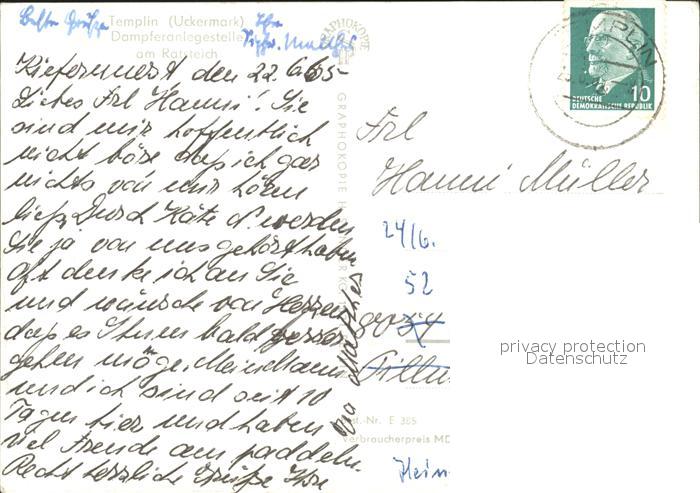 Beste Grüße Ihr
Templin (Uckermark)
Dampferanlegestelle
am Ratsteich
Kiefernnest den 22.6.65
Liebes Frl Hanni! Sie
sind mir hoffentlich
nicht böse dass ich gar
nichts von mir hören
liess, Durch Käte d. werden
Sie ja von uns gehört haben
Oft denke ich an Sie
und wünsche von Herzen
dass es Ihnen bald besser
gehen möge. Mein Mann
und ich sind seit 10
Tagen hier und haben
viel Freude am paddeln.
Recht herzliche Grüße Ihre
GRAPHOKOPIE
DEUTSCHE
DEMOKRATISCHE REPUBLIK
10
Frl
Hanni Müller
24/6.
52
privacy protection
Datenschutz
Best.-Nr. E 385
Verbraucherpreis MD